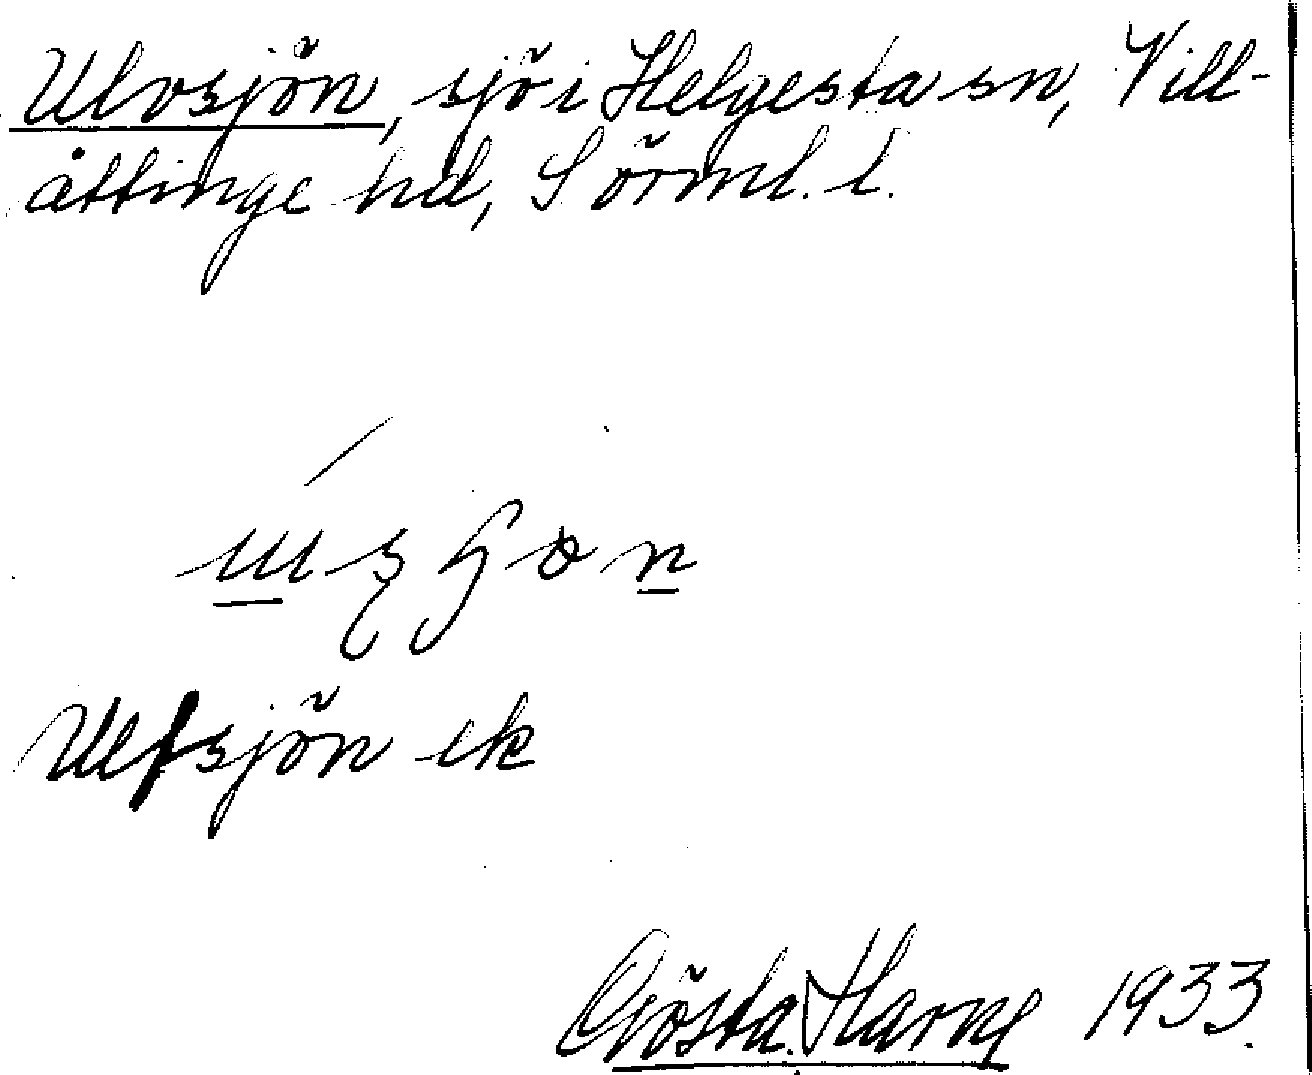 Ulvsjön, sjö i Helgesta sn, Vill-
åttinge hd, Sörml. l.
Ulfsjön ek
Gösta Harne 1933.